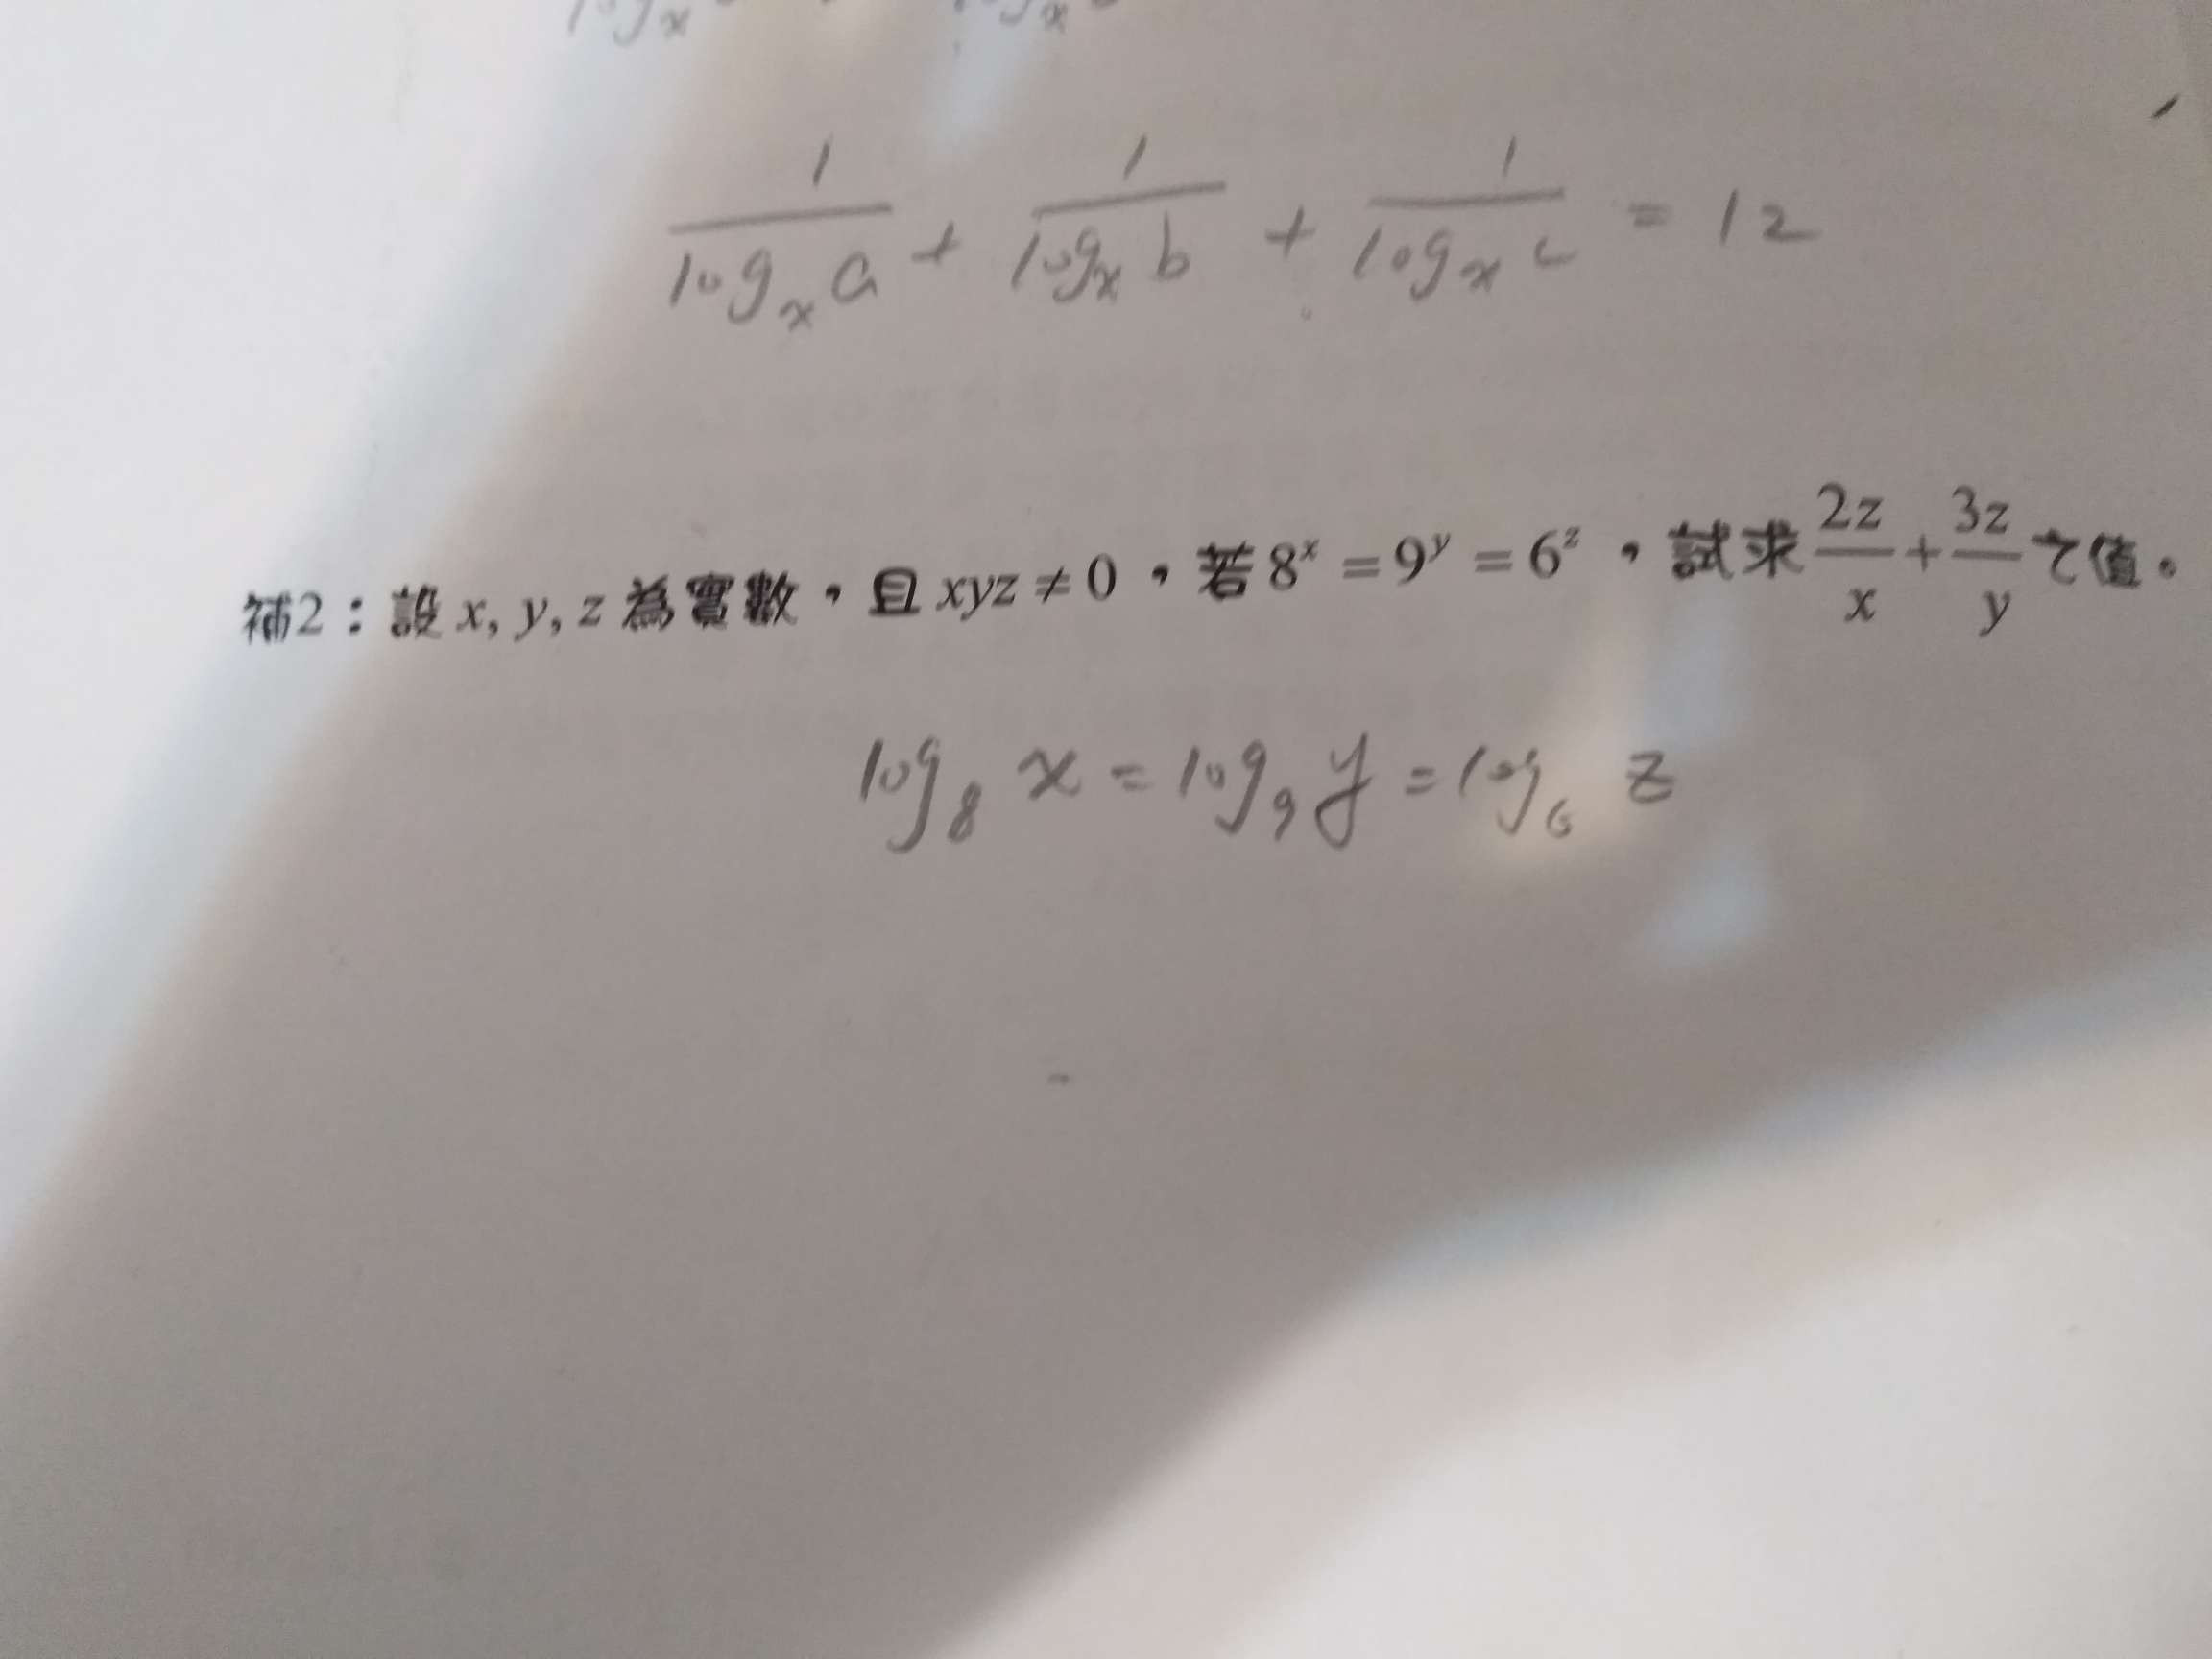 \frac{1}{\log_x a} + \frac{1}{\log_x b} + \frac{1}{\log_x c} = 12
補2：設 x, y, z 為實數，且 xyz ≠ 0，若 8^x = 9^y = 6^z，試求 \frac{2z}{x} + \frac{3z}{y} 之值。
\log_8 x = \log_9 y = \log_6 z